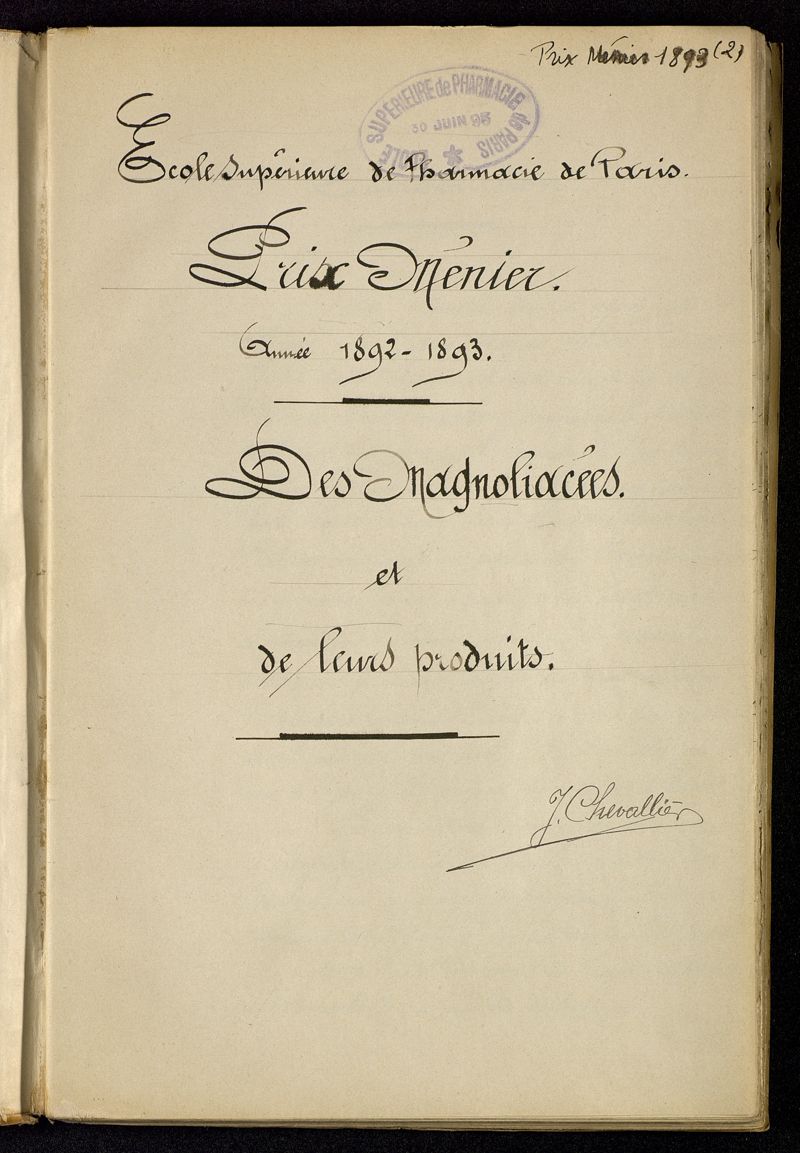 Prix Ménier 1893 (2)
ECOLE SUPERIEURE de PHARMACIE de PARIS
30 JUIN 93
Ecole Supérieure de Pharmacie de Paris.
Prix Ménier.
Année 1892-1893.
Des Magnoliacées.
et
de leurs produits.
J. Chevallier